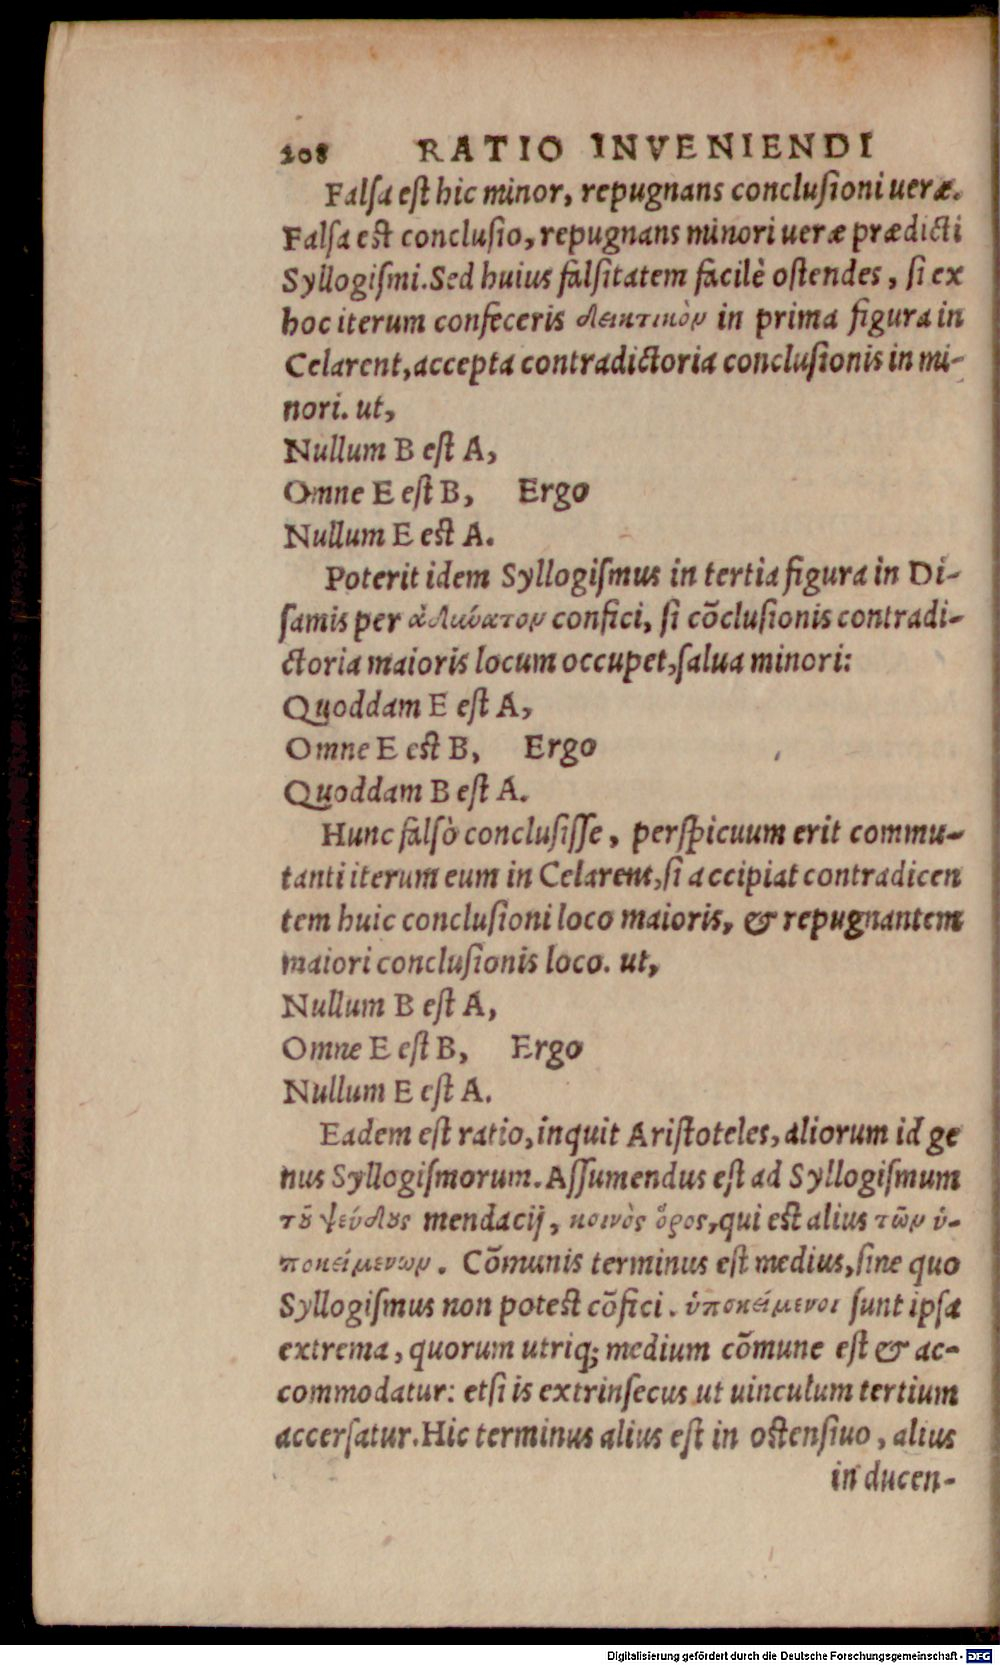 208 RATIO INVENIENDI
Falsa est hic minor, repugnans conclusioni ueræ.
Falsa est conclusio, repugnans minori ueræ prædicti
Syllogismi. Sed huius falsitatem facilè ostendes, si ex
hoc iterum confeceris δεικτικὸν in prima figura in
Celarent, accepta contradictoria conclusionis in mi-
nori. ut,
Nullum B est A,
Omne E est B, Ergo
Nullum E est A.
Poterit idem Syllogismus in tertia figura in Di-
samis per ἀδιύατον confici, si cōclusionis contradi-
ctoria maioris locum occupet, salua minori:
Quoddam E est A,
Omne E est B, Ergo
Quoddam B est A.
Hunc falsò conclusisse, perspicuum erit commu-
tanti iterum eum in Celarent, si accipiat contradicen
tem huic conclusioni loco maioris, & repugnantem
maiori conclusionis loco. ut,
Nullum B est A,
Omne E est B, Ergo
Nullum E est A.
Eadem est ratio, inquit Aristoteles, aliorum id ge
nus Syllogismorum. Assumendus est ad Syllogismum
τȣ͂ ψεύδȣς mendacij, κοινὸς ὅρος, qui est alius τῶν ὑ-
ποκείμενων. Cōmunis terminus est medius, sine quo
Syllogismus non potest cōfici. ὑποκείμενοι sunt ipsa
extrema, quorum utriq; medium cōmune est & ac-
commodatur: etsi is extrinsecus ut uinculum tertium
accersatur. Hic terminus alius est in ostensiuo, alius
in ducen-
Digitalisierung gefördert durch die Deutsche Forschungsgemeinschaft - DFG